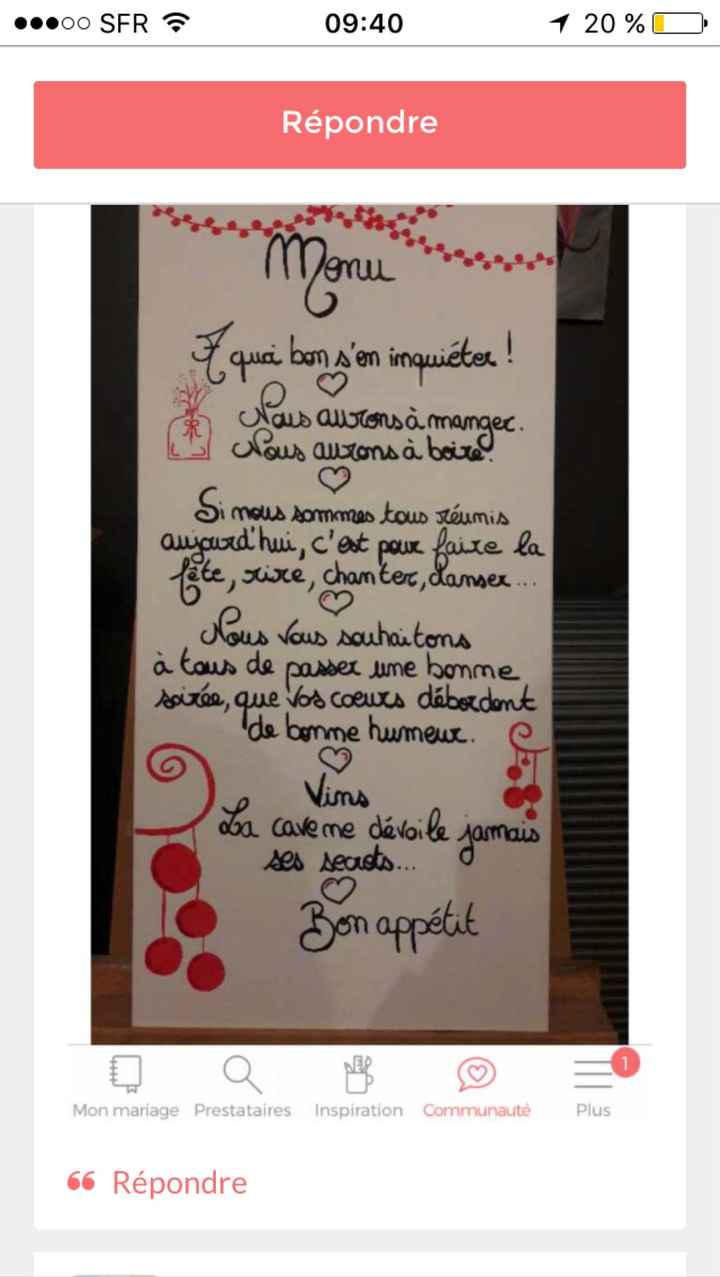 SFR 09:40 20 %
Répondre
Menu
A quoi bon s'en inquiéter !
Nous aurons à manger.
Nous aurons à boire.
Si nous sommes tous réunis
aujourd'hui, c'est pour faire la
fête, rire, chanter, danser...
Nous vous souhaitons
à tous de passer une bonne
soirée, que vos coeurs débordent
de bonne humeur.
Vins
La cave ne dévoile jamais
ses secrets...
Bon appétit
1
Mon mariage Prestataires Inspiration Communauté Plus
❝ Répondre